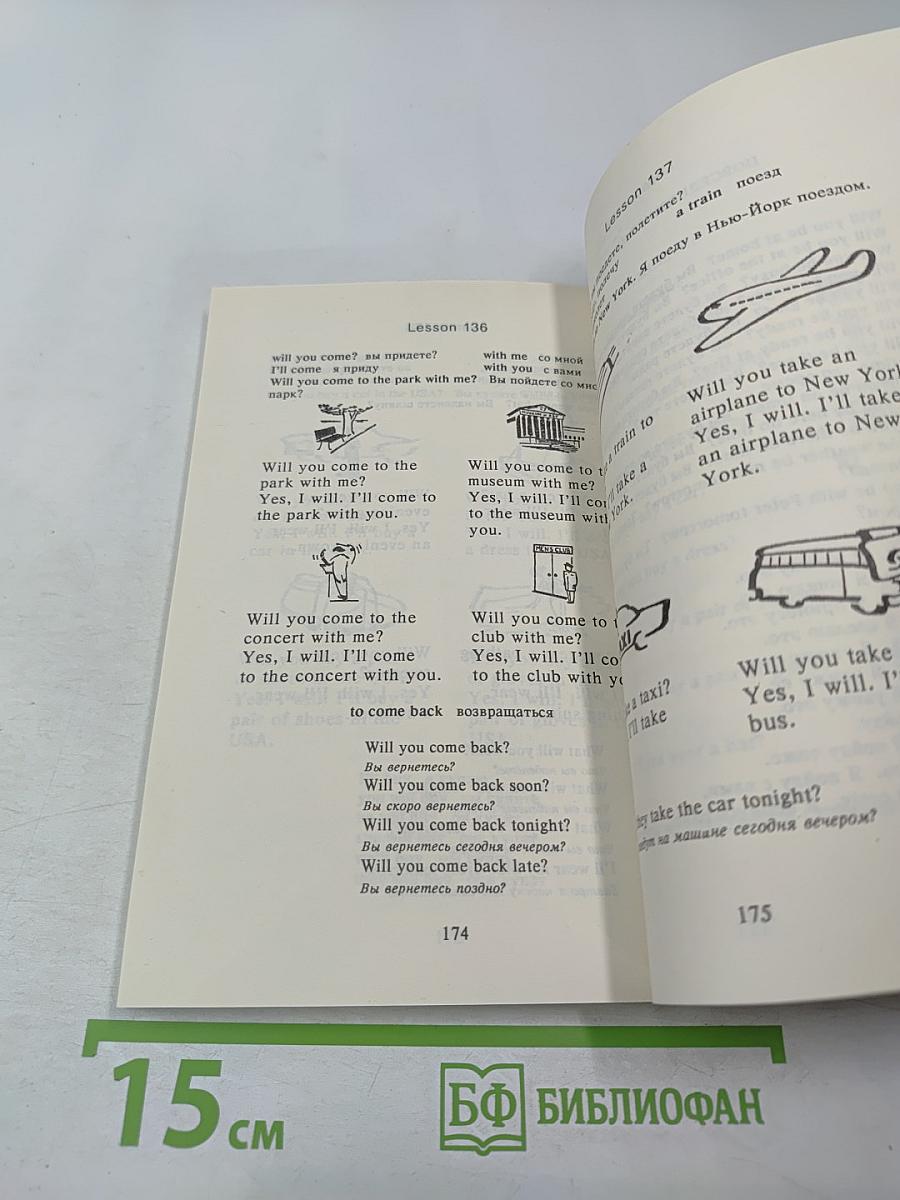 Lesson 136
will you come? вы придете?
with me со мной
I'll come я приду
with you с вами
Will you come to the park with me? Вы пойдете со
парк?
Will you come to the
park with me?
Yes, I will. I'll come to
the park with you.
Will you come to
museum with me?
Yes, I will. I'll
to the museum with
you.
MEN'S CLUB
Will you come to the
concert with me?
Yes, I will. I'll come
to the concert with you.
Will you come to
club with me?
Yes, I will. I'll
to the club with
to come back возвращаться
Will you come back?
Вы вернетесь?
Will you come back soon?
Вы скоро вернетесь?
Will you come back tonight?
Вы вернетесь сегодня вечером?
Will you come back late?
Вы вернетесь поздно?
174
Lesson 137
полетите?
a train поезд
New York. Я поеду в Нью-Йорк поездом.
a train to
take a
York.
Will you take an
airplane to New
Yes, I will. I'll take
an airplane to New
York.
a taxi?
I'll take
Will you take
Yes, I will.
bus.
take the car tonight?
на машине сегодня вечером?
175
15 см
БФ БИБЛИОФАН